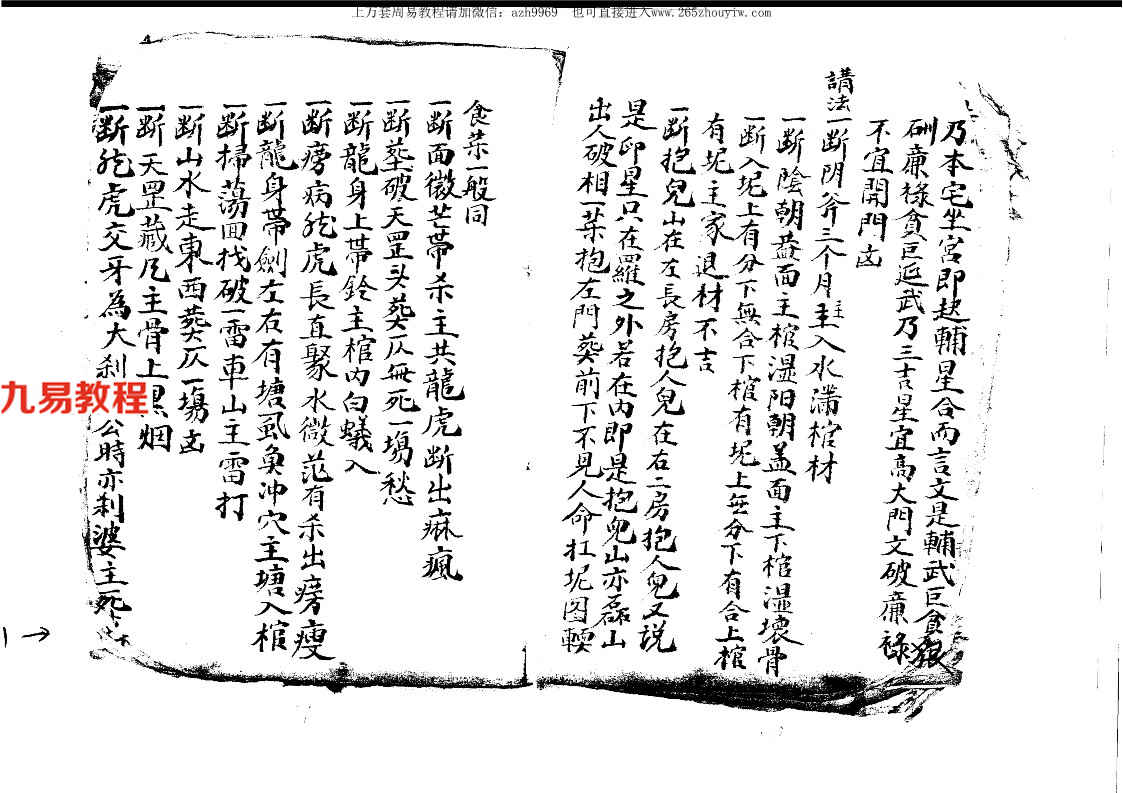 上万套周易教程请加微信：azh9969 也可直接进入www.265zhouyiw.com
乃本宅坐宮即起輔星合而言文是輔武巨貪狼
酬廉祿貪巨延武乃三吉星宜高大門文破廉祿
不宜開門凶
講法
一斷阴斧三个月主主入水满棺材
一斷陰朝葢面主棺湿阳朝盖面主下棺湿壞骨
一断入坭上有分下無合下棺有坭上無分下有合上棺
有坭主家退材不吉
一断抱兒山在左長房抱人兒在右二房抱人兒又説
是印星只在羅之外若在内即是抱兒山亦磊山
出人破相一菜抱左門葵前下不見人命扛坭图轉
食菜一般同
一斷面微芒帶杀主共龍虎断出麻瘋
一斷墓破天罡头葵仄無死一塲愁
一斷龍身上帶鈴主棺内白蟻入
一斷痨病龙虎長直聚水微茫有杀出痨瘦
一斷龍身帶劍左右有塘虱魚冲穴主塘入棺
一斷掃蕩面找破一雷車山主雷打
一断山水走東西葵仄一塲凶
一断天罡藏凡主骨上黑烟
一断龙虎交牙為大刹公時亦刹婆主死
九易教程
1→